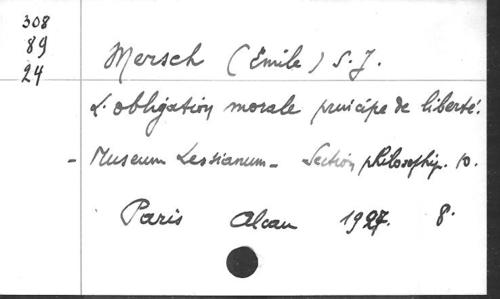 308
89
24
Mersch (Émile) S. J.
L'obligation morale principe de liberté.
- Museum Lessianum - Section philosophiq. 10.
Paris Alcan 1927. 8.